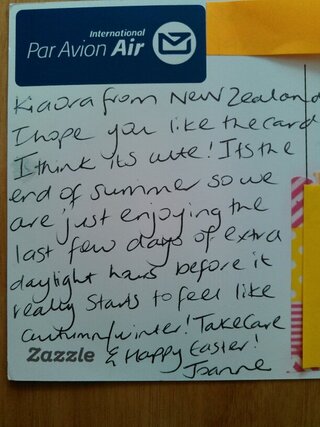 International
Par Avion Air
Kiaora from New Zealand
I hope you like the card
I think its cute! Its the
end of summer so we
are just enjoying the
last few days of extra
daylight hours before it
really starts to feel like
autumn/winter! Take care
Zazzle & Happy Easter!
Joanne